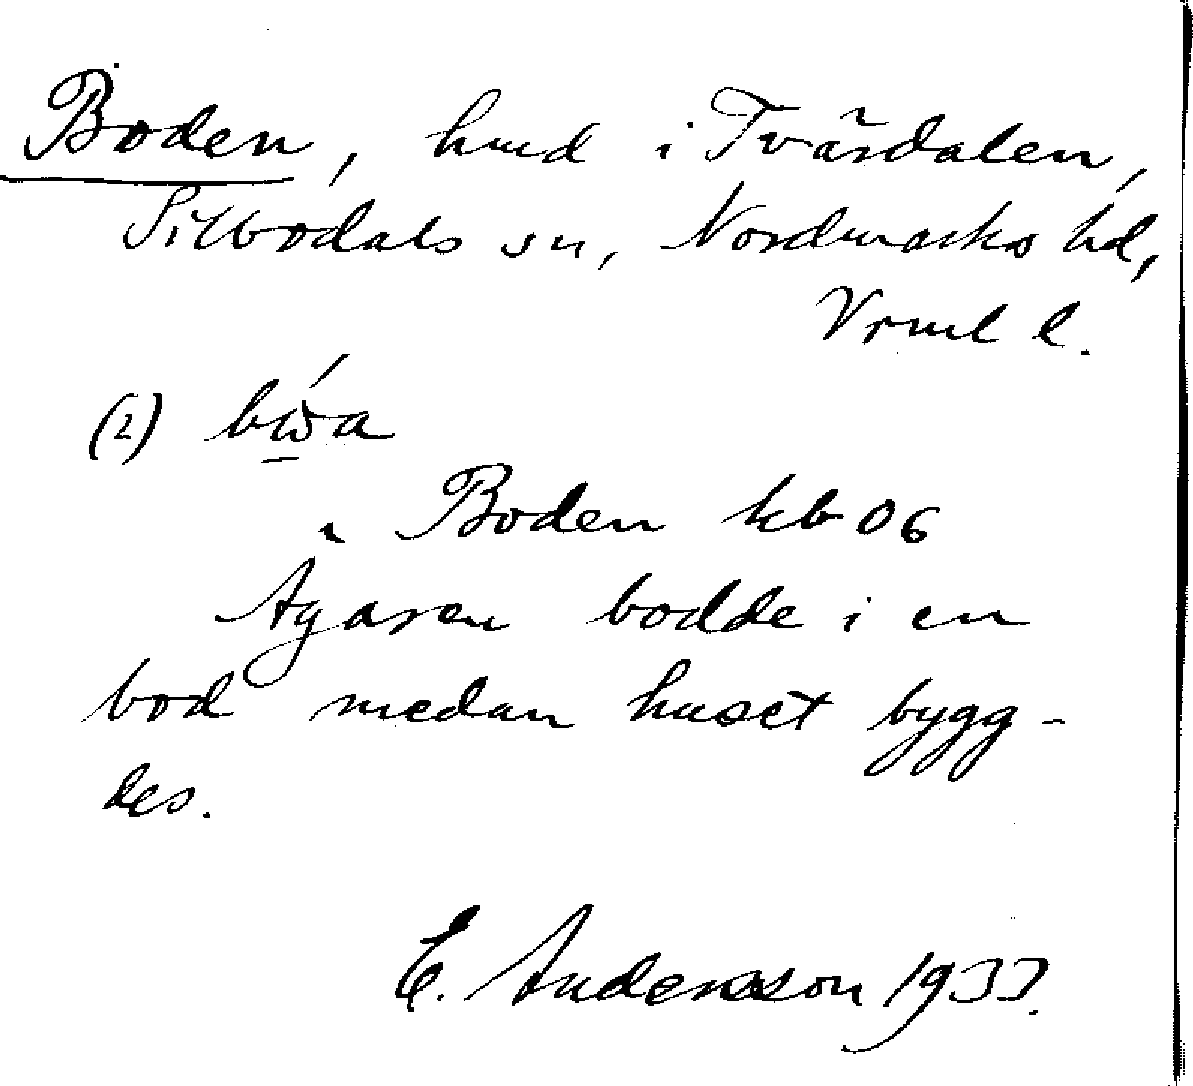 Boden, hmd i Tvärdalen,
Silbodals sn, Nordmarks hd,
Vrml l.
(2) bẃa
Boden kb 06
Ägaren bodde i en
bod medan huset bygg-
des.
E. Andersson 1933.